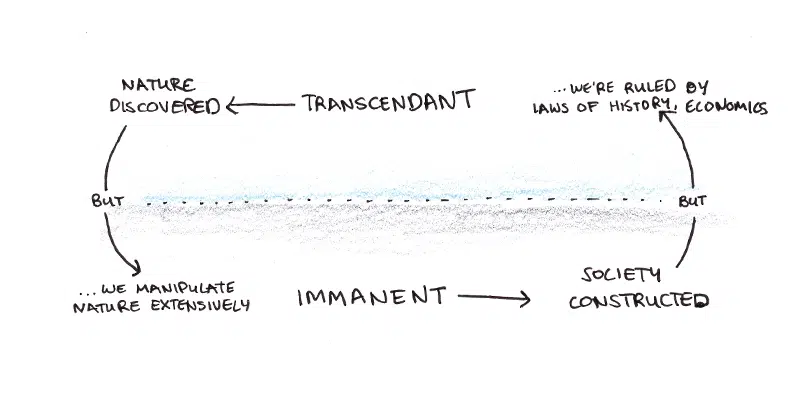 NATURE
DISCOVERED
TRANSCENDANT
...WE'RE RULED BY
LAWS OF HISTORY, ECONOMICS
BUT
BUT
...WE MANIPULATE
NATURE EXTENSIVELY
IMMANENT
SOCIETY
CONSTRUCTED